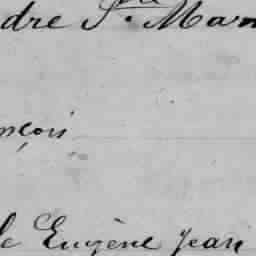 dre Ste. Mar
nçois
le Eugène Jean